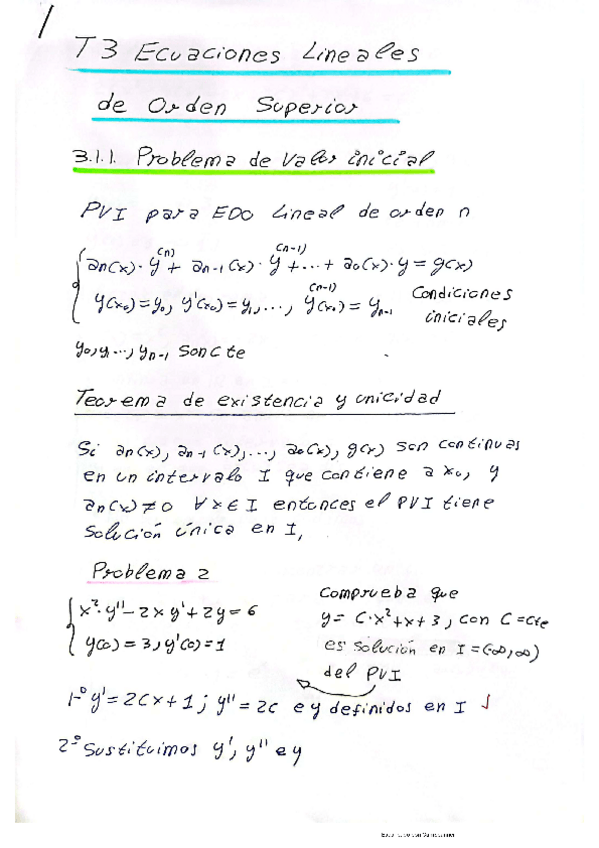 1
T3 Ecuaciones Lineales
de Orden Superior
3.1.1. Problema de valor inicial
PVI para EDO Lineal de orden n
an(x)·y^(n) + an-1(x)·y^(n-1) +...+ a0(x)·y = g(x)
y(x0)=y0, y'(x0)=y1,..., y^(n-1)(x0)=yn-1 Condiciones
iniciales
y0,y1...,yn-1 son cte
Teorema de existencia y unicidad
Si an(x), an-1(x),..., a0(x), g(x) son continuas
en un intervalo I que contiene a x0, y
an(x)≠0 ∀x∈I entonces el PVI tiene
solución única en I,
Problema 2
x²·y''-2xy'+2y=6
y(0)=3, y'(0)=1
Comprueba que
y= C·x²+x+3, con C=cte
es solución en I=(-∞,∞)
del PVI
1º y'=2Cx+1; y''=2C e y definidos en I
2º Sustituimos y', y'' e y